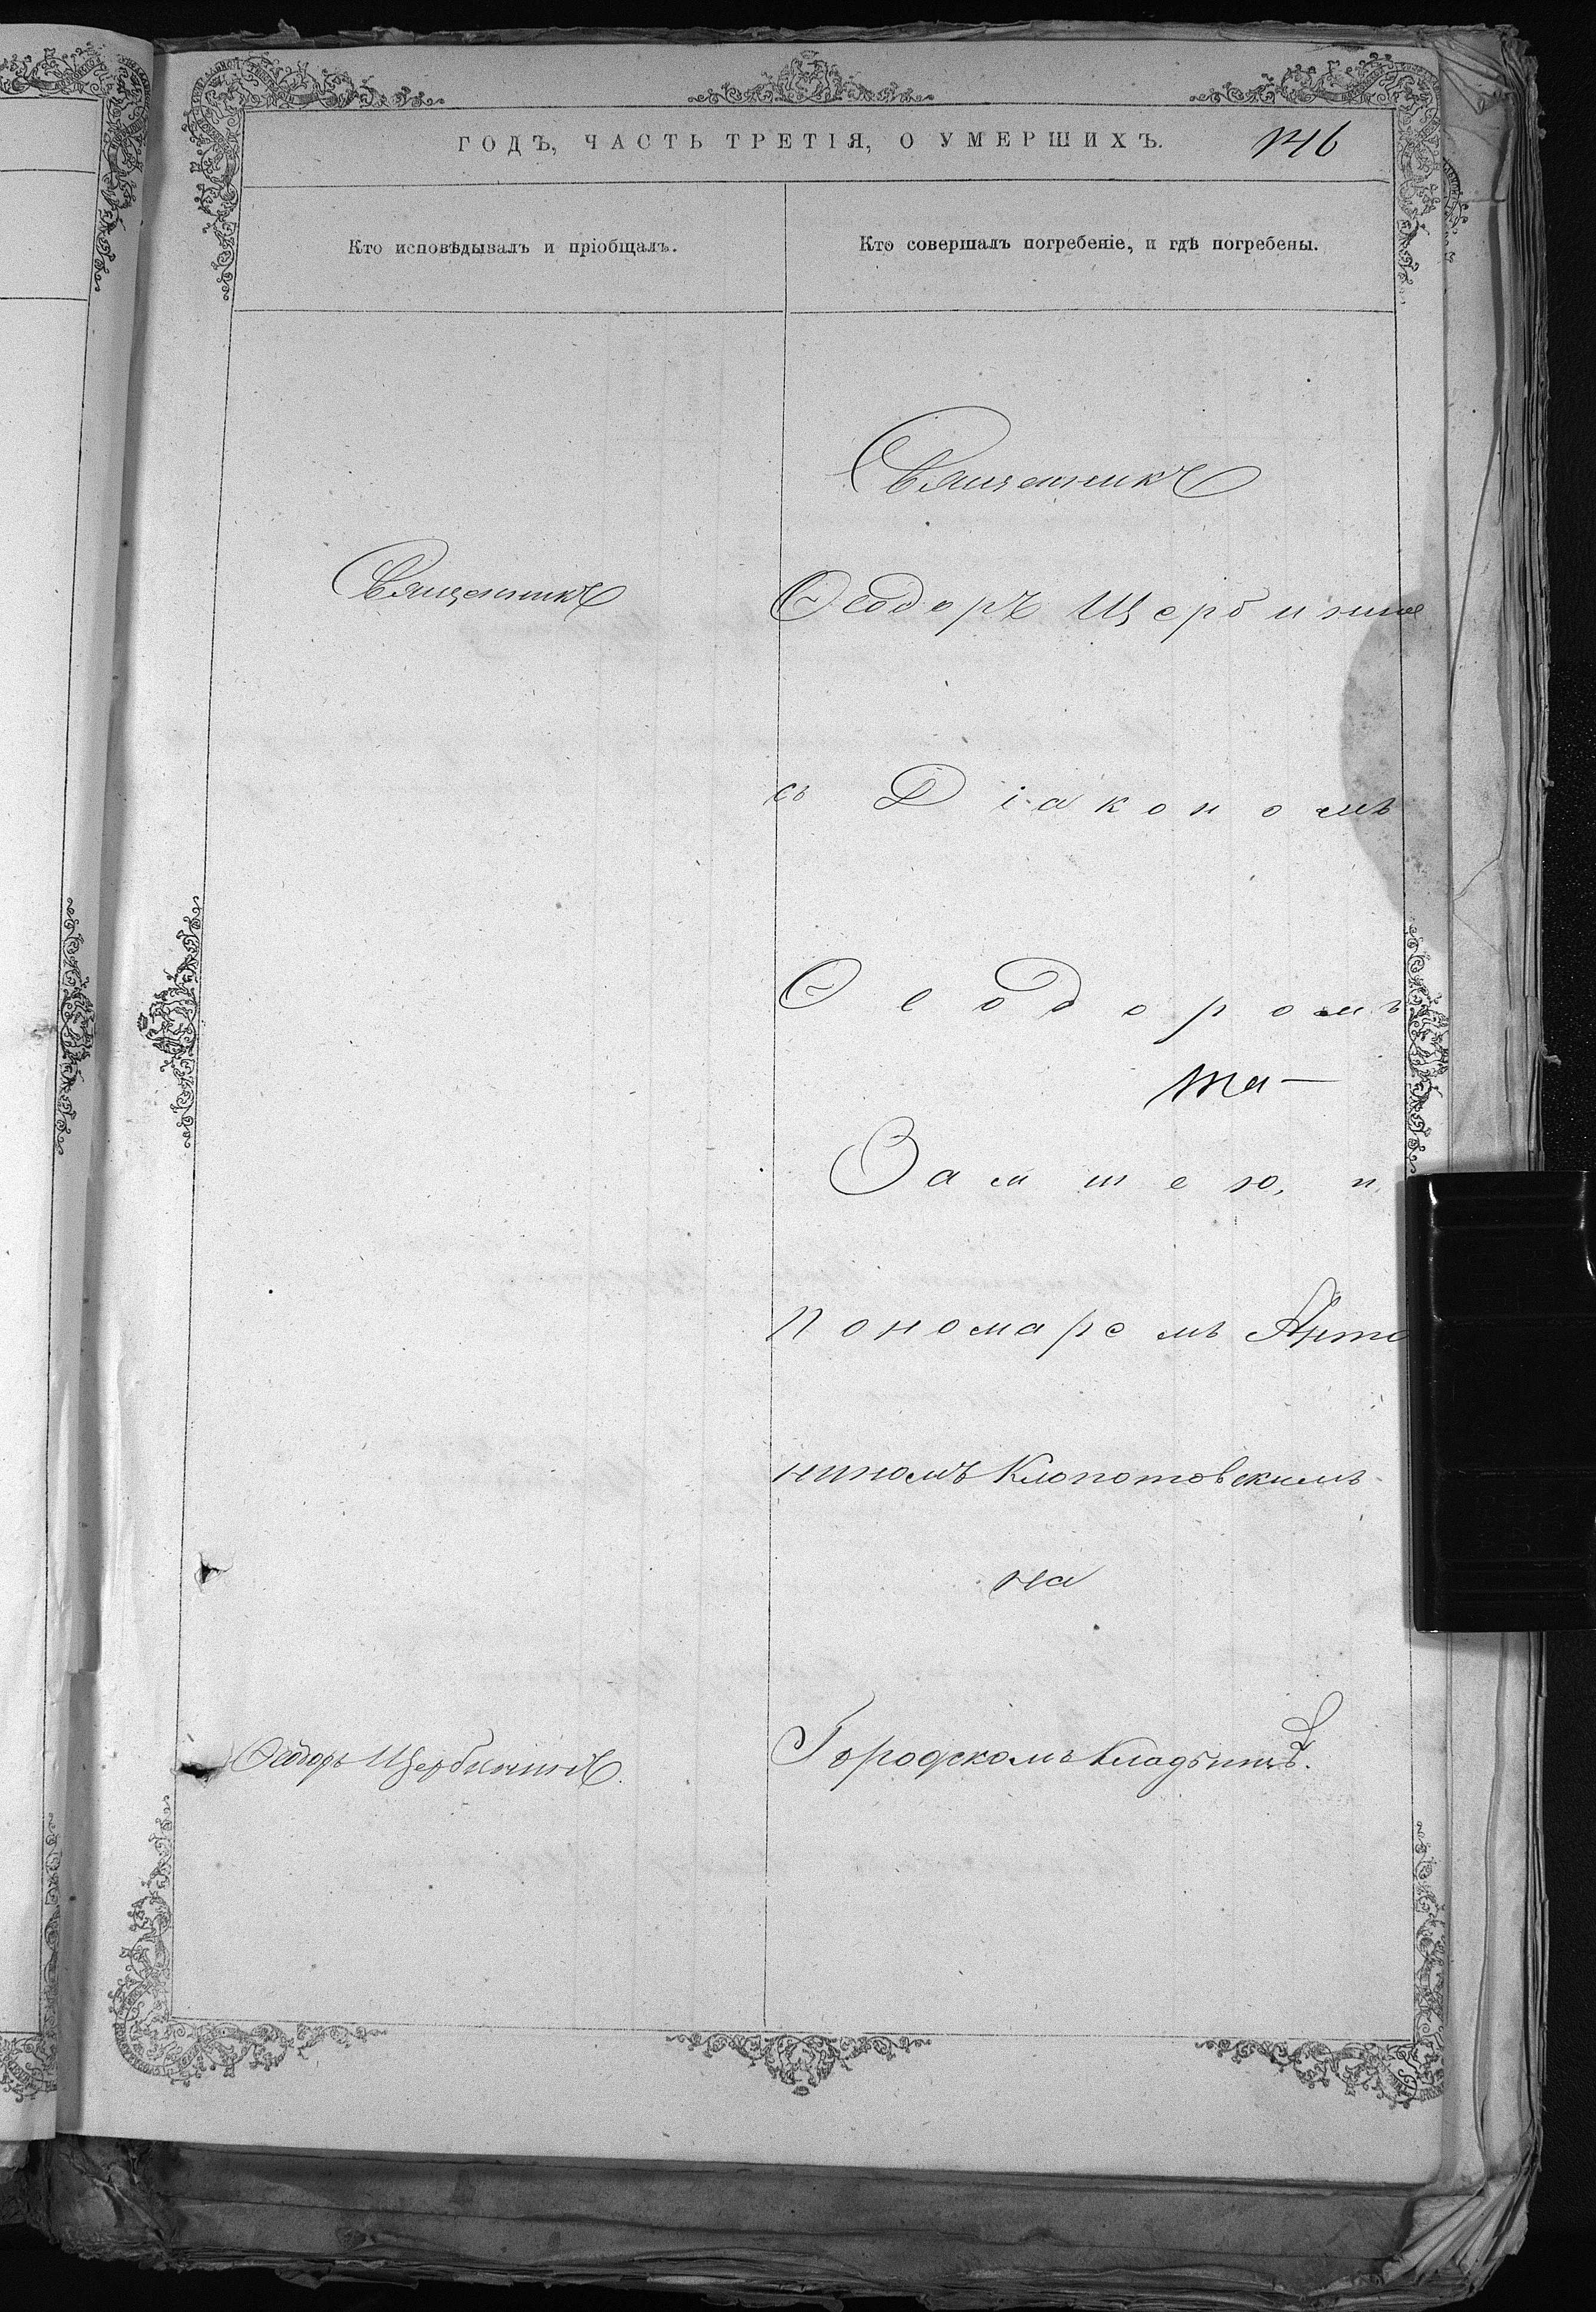 ГОДЪ, ЧАСТЬ ТРЕТІЯ, О УМЕРШИХЪ. 146
Кто исповѣдывалъ и пріобщалъ.
Кто совершалъ погребеніе, и гдѣ погребены.
Священникъ
Ѳеодоръ Щербининъ.
Священникъ
Ѳеодоръ Щербининъ
съ Діакономъ
Ѳеодоромъ
та-
Зам шею, и
пономаремъ Анто
ниномъ Клопотовскимъ
на
Городскомъ Кладбищѣ.